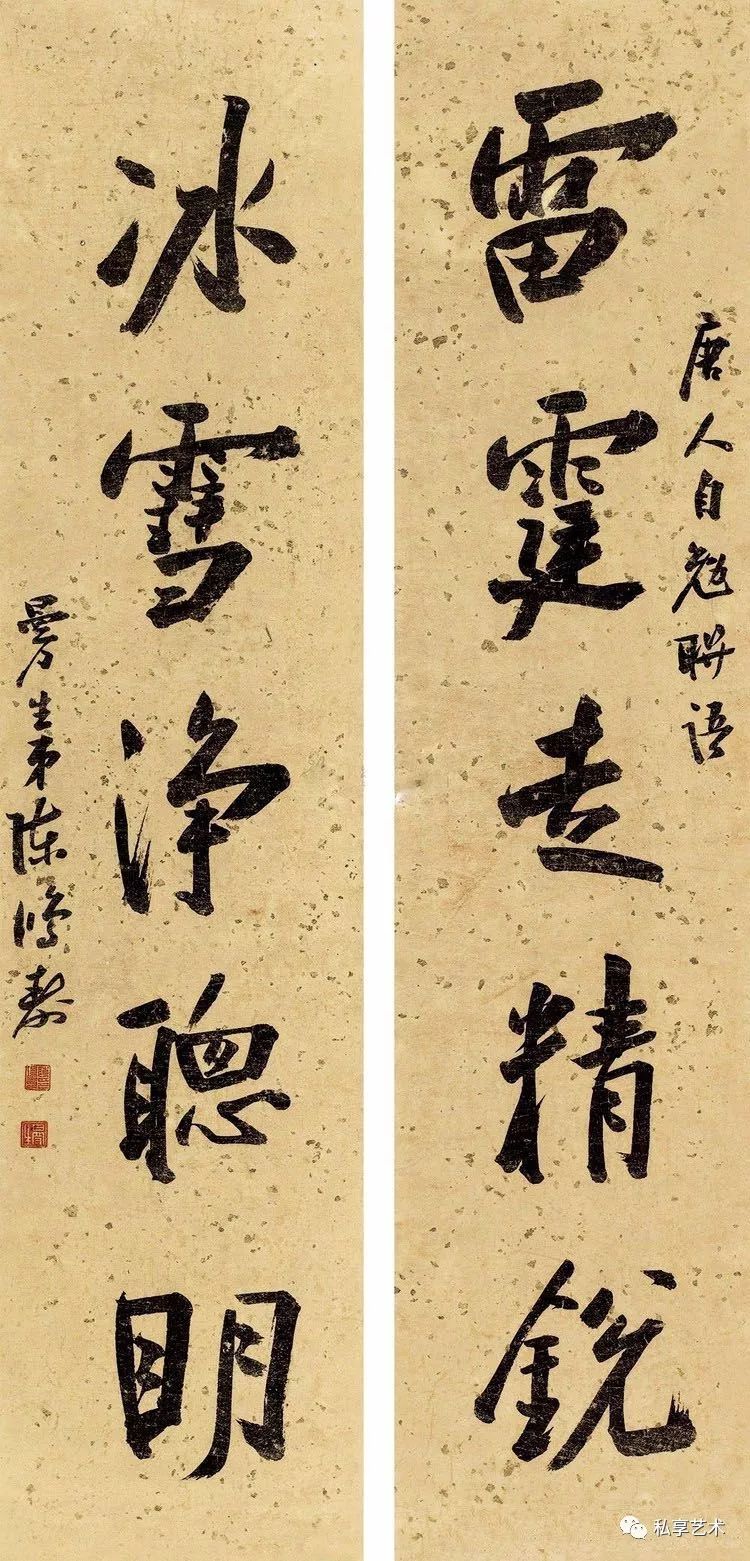 唐人自聯語
雷霆走精銳
冰雪淨聰明
曼生弟陳鴻壽
私享艺术